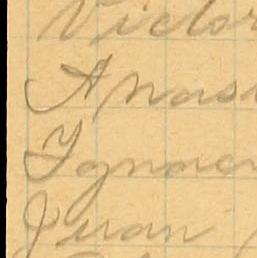 Victor
Anas
Ignac
Juan